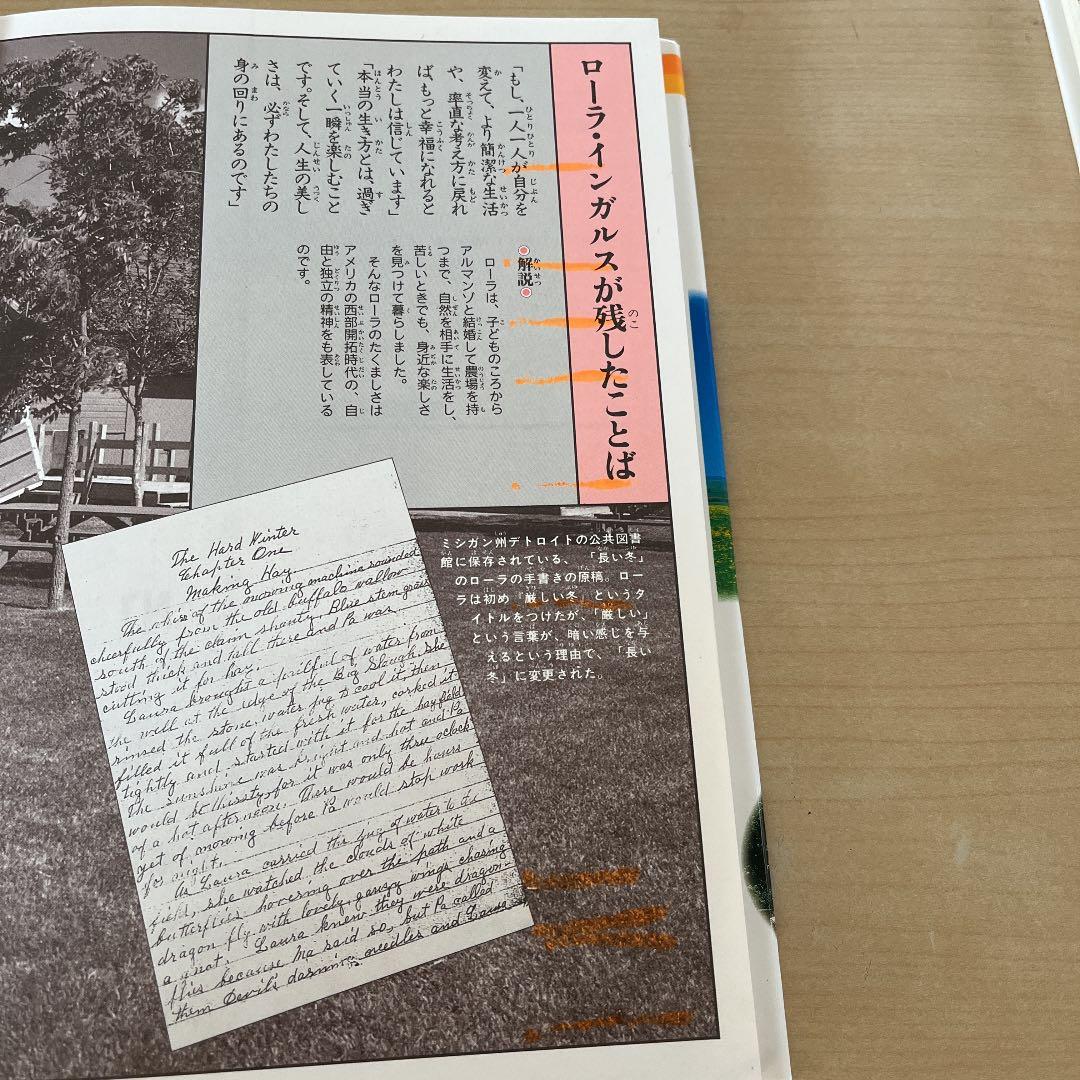 ローラ・インガルスが残したことば
「もし、一人一人が自分を
変えて、より簡潔な生活
や、率直な考え方に戻れ
ば、もっと幸福になれると
わたしは信じています」
「本当の生き方とは、過ぎ
ていく一瞬を楽しむこと
です。そして、人生の美し
さは、必ずわたしたちの
身の回りにあるのです」
解説
ローラは、子どものころから
アルマンゾと結婚して農場を持
つまで、自然を相手に生活をし、
苦しいときでも、身近な楽しさ
を見つけて暮らしました。
そんなローラのたくましさは
アメリカの西部開拓時代の、自
由と独立の精神をも表している
のです。
ミシガン州デトロイトの公共図書
館に保存されている、「長い冬」
のローラの手書きの原稿。ロー
ラは初め『厳しい冬』というタ
イトルをつけたが、「厳しい」
という言葉が、暗い感じを与
えるという理由で、「長い
冬」に変更された。
The Hard Winter
Chapter One
Making Hay.
The whirr of the mowing machine sounded
cheerfully from the old buffalo wallow
south of the claim shanty. Blue stem grass
stood thick and tall there and Pa was
cutting it for hay.
Laura brought a pailful of water from
the well at the edge of the Big Slough. She
rinsed the stone water jug to cool it, then
filled it full of the fresh water, corked it
tightly and started with it for the hayfield
The sunshine was bright and hot and Pa
would be thirsty, for it was only three oclock
of a hot afternoon. There would be hours
yet of mowing before Pa would stop work
for night.
As Laura carried the jug of water to the
field, she watched the clouds of white
butterflies hovering over the path and a
dragon fly with lovely gauzy wings chasing
a gnat. Laura knew they were dragon-
flies because Ma said so, but Pa called
them Devil's darning needles and Laura